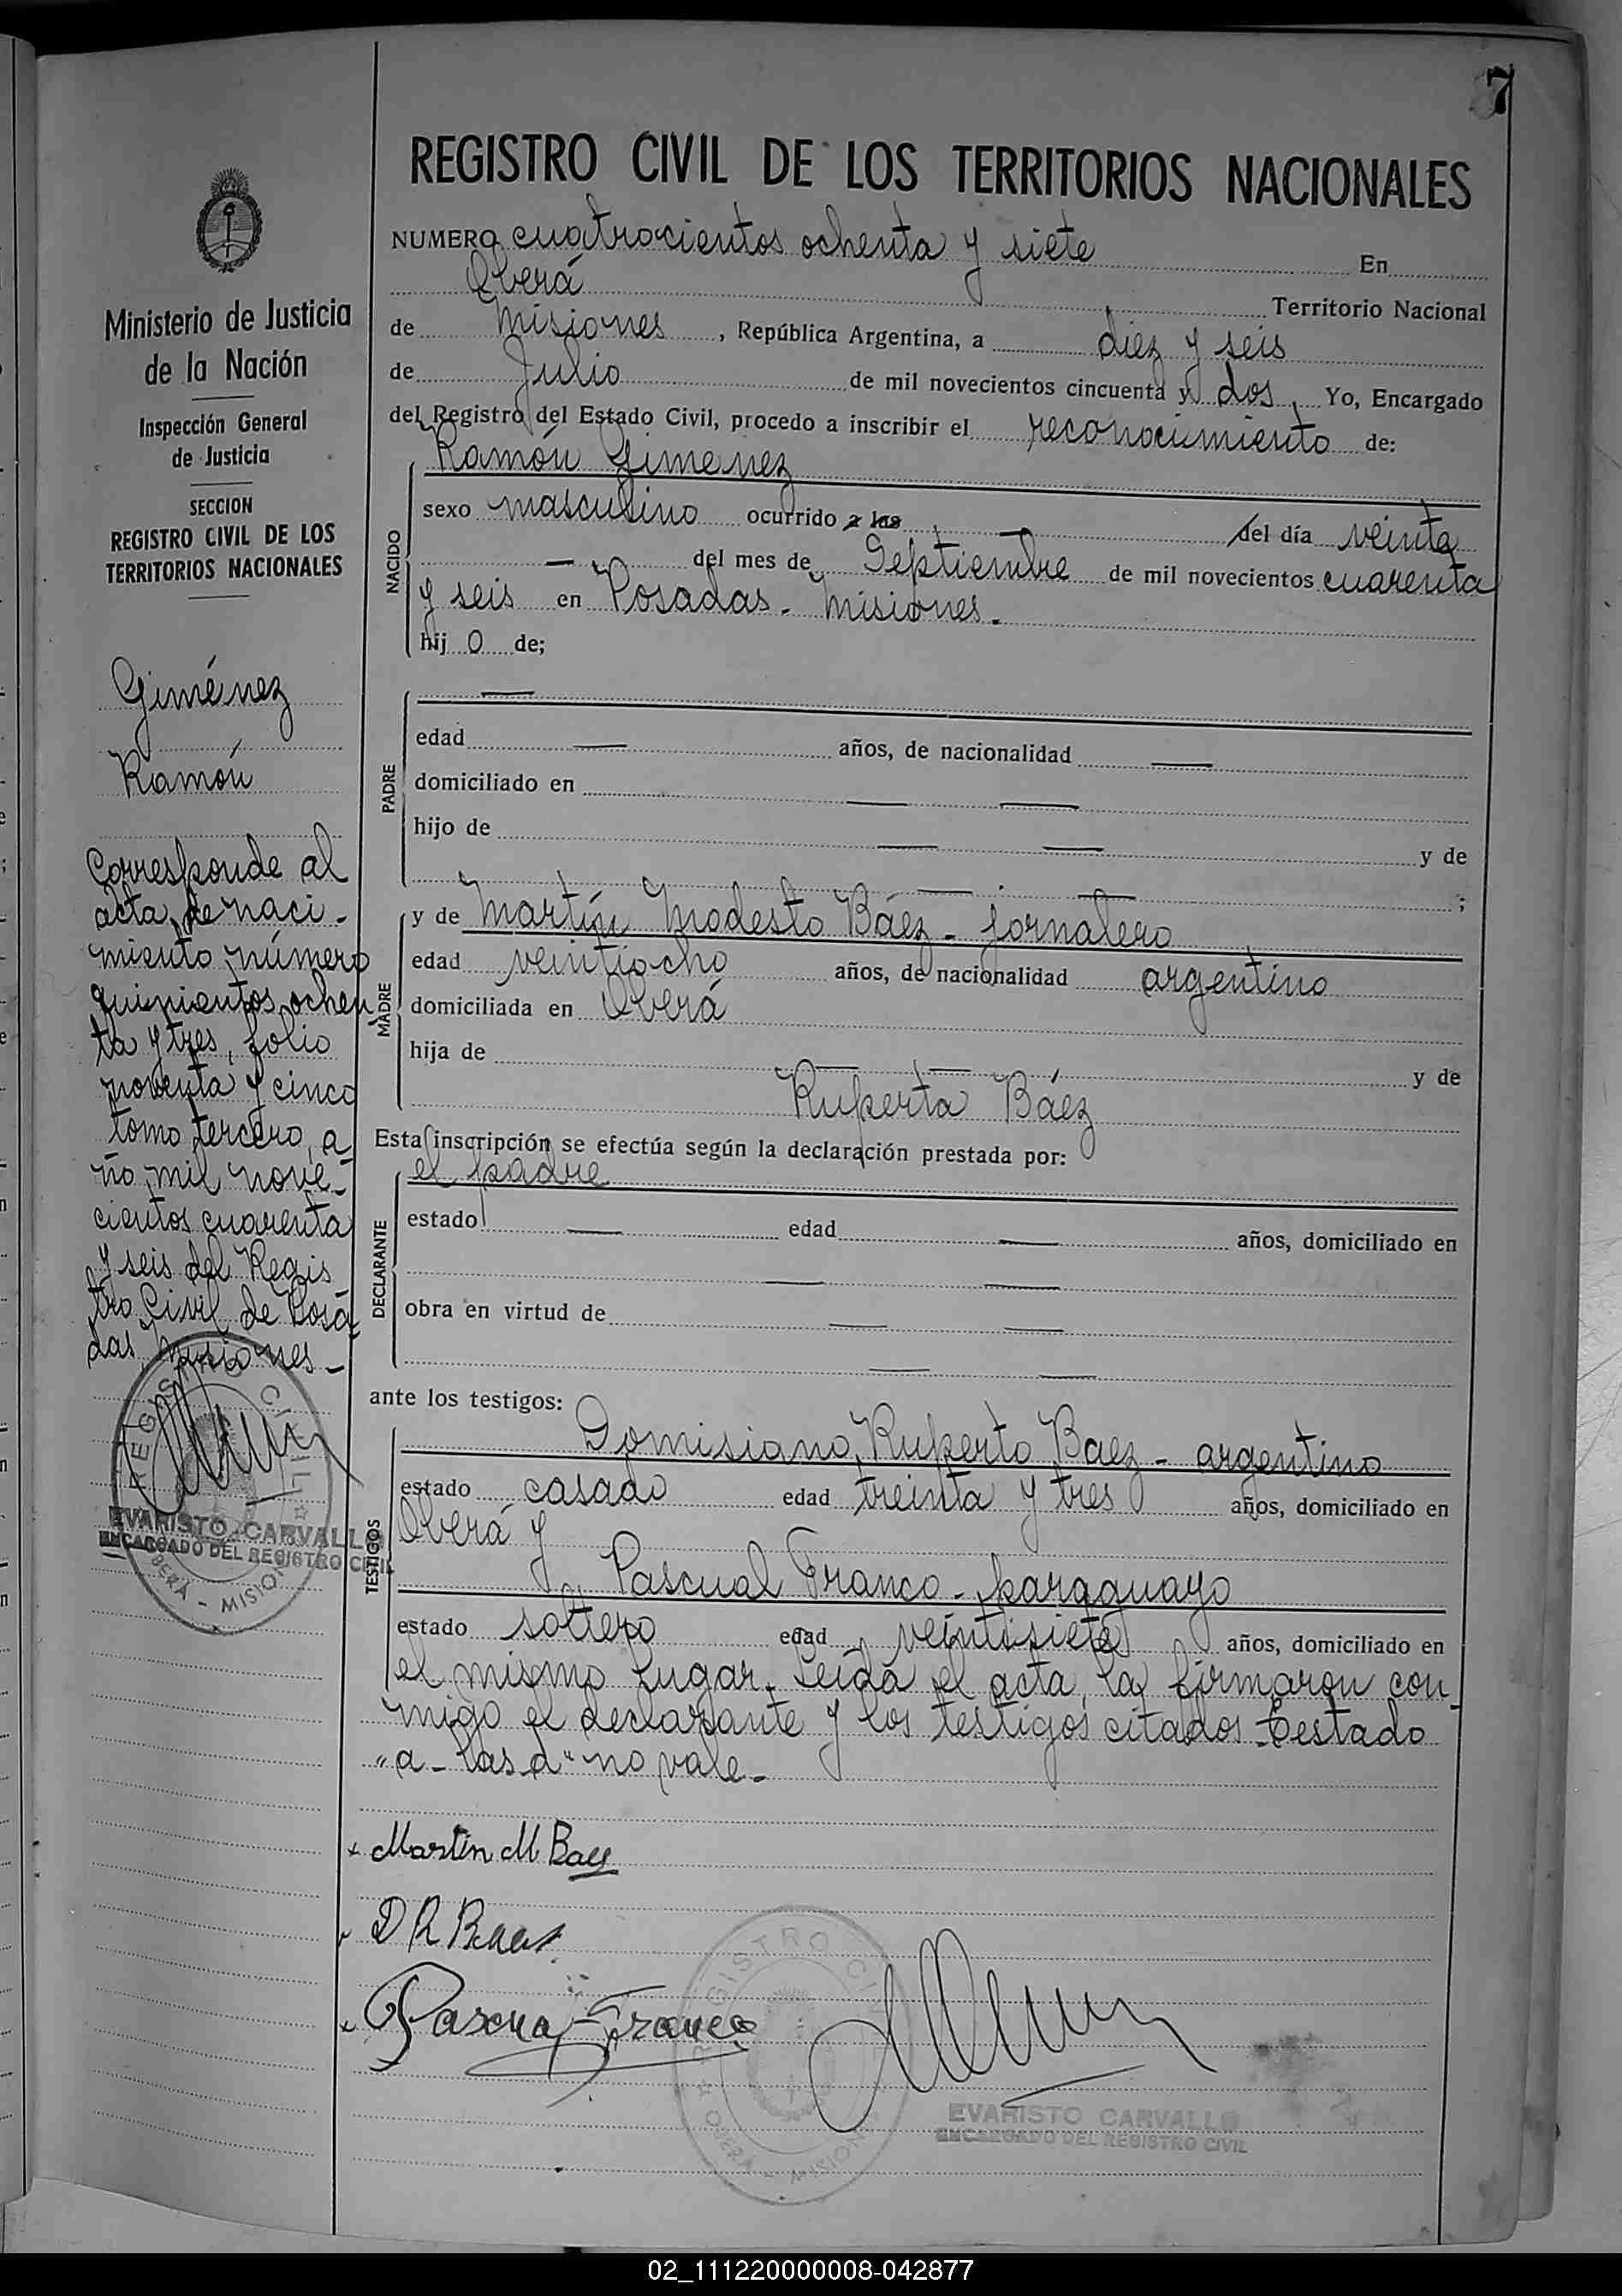 7
REGISTRO CIVIL DE LOS TERRITORIOS NACIONALES
NUMERO cuatrocientos ochenta y siete En
Oberá Territorio Nacional
de Misiones, República Argentina, a diez y seis
de Julio de mil novecientos cincuenta y dos, Yo, Encargado
del Registro del Estado Civil, procedo a inscribir el reconocimiento de:
NACIDO
Ramón Gimenez
sexo masculino ocurrido a las — del día veinte
— del mes de Septiembre de mil novecientos cuarenta
y seis en Posadas - Misiones.
hij o de;
PADRE
—
edad — años, de nacionalidad —
domiciliado en — —
hijo de — — y de
— — ;
MADRE
y de Martín Modesto Báez - jornalero
edad veintiocho años, de nacionalidad argentino
domiciliada en Oberá
hija de — — y de
Ruperta Báez
Esta inscripción se efectúa según la declaración prestada por:
DECLARANTE
el padre
estado — edad — años, domiciliado en
— —
obra en virtud de — —
— —
ante los testigos:
TESTIGOS
Domisiano Ruperto Baez - argentino
estado casado edad treinta y tres años, domiciliado en
Oberá y
Pascual Franco - paraguayo
estado soltero edad veintisiete años, domiciliado en
el mismo lugar. Leída el acta, la firmaron con-
migo el declarante y los testigos citados. Testado
"a - las d" no vale -
x Martin M Baez
D R Baez
Pascual Franco
REGISTRO CIVIL
OBERÁ - MISIONES
EVARISTO CARVALLO
ENCARGADO DEL REGISTRO CIVIL
Ministerio de Justicia
de la Nación
Inspección General
de Justicia
SECCION
REGISTRO CIVIL DE LOS
TERRITORIOS NACIONALES
Giménez
Ramón
Corresponde al
acta de naci-
miento número
quinientos ochen
ta y tres, folio
noventa y cinco
tomo tercero, a
ño mil nove-
cientos cuarenta
y seis del Regis
tro Civil de Posa
das Misiones -
REGISTRO CIVIL
OBERÁ - MISIONES
EVARISTO CARVALLO
ENCARGADO DEL REGISTRO CIVIL
02_111220000008-042877